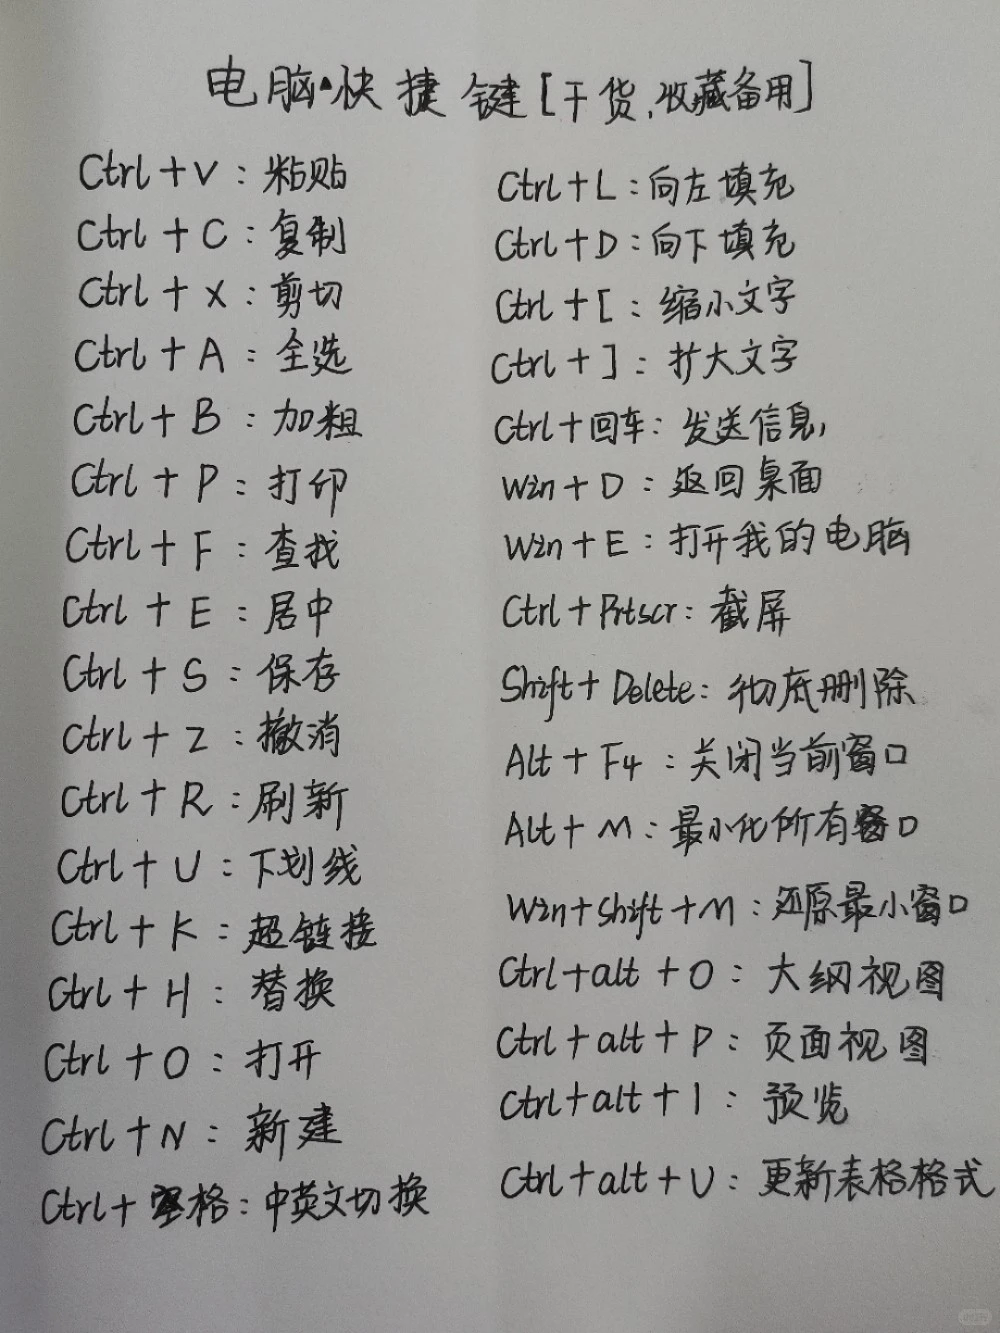 电脑快捷键[干货,收藏备用]
Ctrl+V:粘贴
Ctrl+C:复制
Ctrl+X:剪切
Ctrl+A:全选
Ctrl+B:加粗
Ctrl+P:打印
Ctrl+F:查找
Ctrl+E:居中
Ctrl+S:保存
Ctrl+Z:撤消
Ctrl+R:刷新
Ctrl+U:下划线
Ctrl+K:超链接
Ctrl+H:替换
Ctrl+O:打开
Ctrl+N:新建
Ctrl+空格:中英文切换
Ctrl+L:向左填充
Ctrl+D:向下填充
Ctrl+[:缩小文字
Ctrl+]:扩大文字
Ctrl+回车:发送信息,
Win+D:返回桌面
Win+E:打开我的电脑
Ctrl+Prtscr:截屏
Shift+Delete:彻底删除
Alt+F4:关闭当前窗口
Alt+M:最小化所有窗口
Win+shift+M:还原最小窗口
Ctrl+alt+O:大纲视图
Ctrl+alt+P:页面视图
Ctrl+alt+I:预览
Ctrl+alt+U:更新表格格式